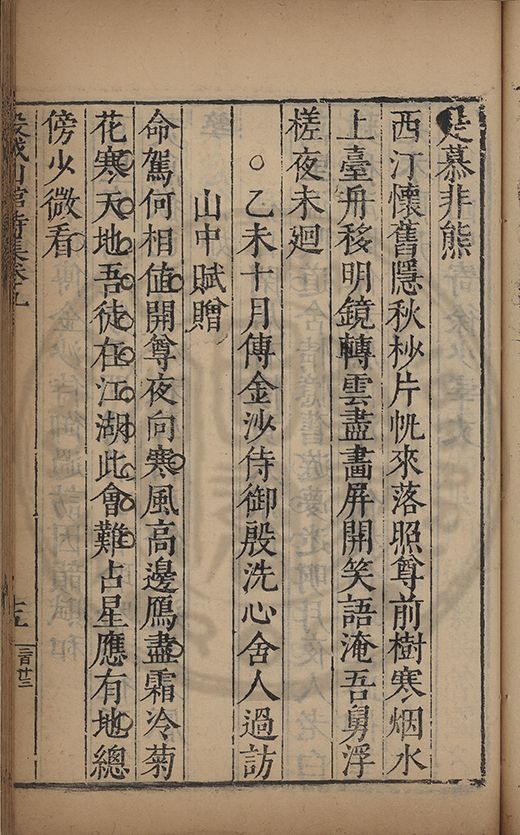 是慕非熊
西汀懷舊隱秋杪片帆來落照尊前樹寒烟水
上臺舟移明鏡轉雲盡畵屏開笑語淹吾舅浮
槎夜未廻
○乙未十月傅金沙侍御殷洗心舍人過訪
山中賦贈
命駕何相值開尊夜向寒風高邊鴈盡霜冷菊
花寒天地吾徒在江湖此會難占星應有地總
傍少微看
山館詩集卷九
十五
三百廿三